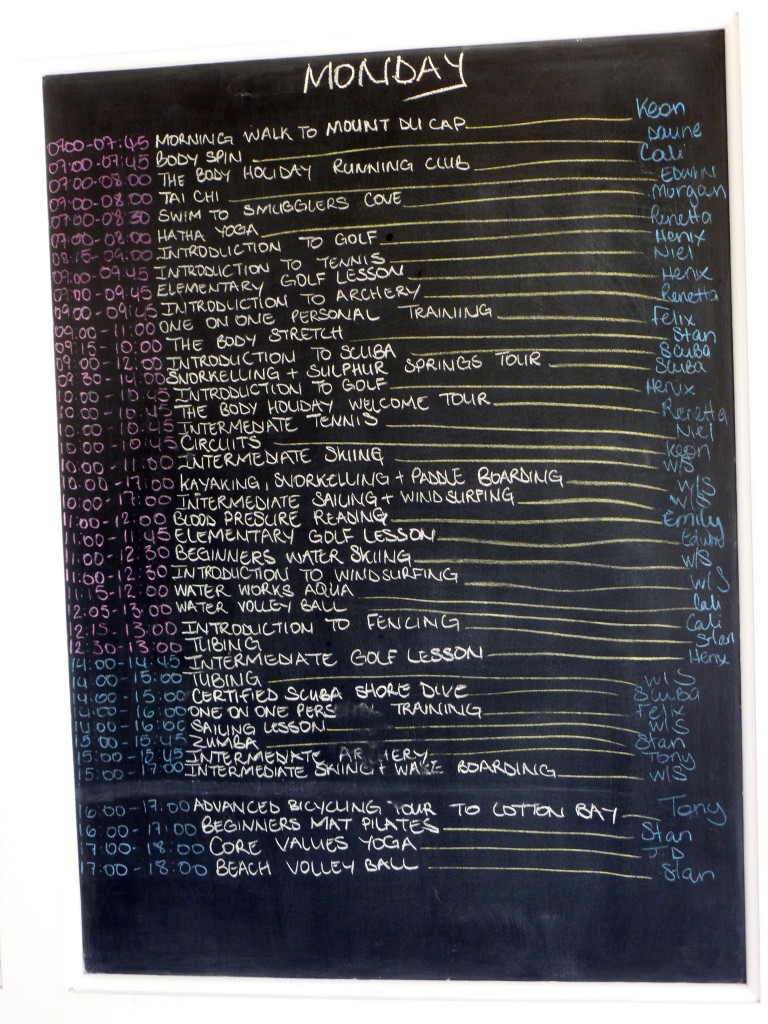 MONDAY
07:00-07:45 MORNING WALK TO MOUNT DU CAP Keon
07:00-07:45 BODY SPIN Daune
07:00-08:00 THE BODY HOLIDAY RUNNING CLUB Cali
07:00-08:00 TAI CHI Edwin
07:00-08:30 SWIM TO SMUGGLERS COVE Morgan
07:00-08:00 HATHA YOGA Renetta
08:15-09:00 INTRODUCTION TO GOLF Henix
09:00-09:45 INTRODUCTION TO TENNIS Niel
09:00-09:45 ELEMENTARY GOLF LESSON Henix
09:00-09:45 INTRODUCTION TO ARCHERY Renetta
09:00-11:00 ONE ON ONE PERSONAL TRAINING Felix
09:15-10:00 THE BODY STRETCH Stan
09:00-12:00 INTRODUCTION TO SCUBA Scuba
09:30-14:00 SNORKELLING + SULPHUR SPRINGS TOUR Scuba
10:00-10:45 INTRODUCTION TO GOLF Henix
10:00-10:45 THE BODY HOLIDAY WELCOME TOUR Renetta
10:00-10:45 INTERMEDIATE TENNIS Niel
10:00-10:45 CIRCUITS Keon
10:00-11:00 INTERMEDIATE SKIING W/S
10:00-17:00 KAYAKING, SNORKELLING + PADDLE BOARDING W/S
10:00-17:00 INTERMEDIATE SAILING + WINDSURFING W/S
11:00-12:00 BLOOD PRESURE READING Emily
11:00-11:45 ELEMENTARY GOLF LESSON Edwin
11:00-12:30 BEGINNERS WATER SKIING W/S
11:00-12:30 INTRODUCTION TO WINDSURFING W/S
11:15-12:00 WATER WORKS AQUA Cali
12:05-13:00 WATER VOLLEY BALL Cali
12:15-13:00 INTRODUCTION TO FENCING Stan
12:30-13:00 TUBING
14:00-14:45 INTERMEDIATE GOLF LESSON Henix
14:00-15:00 TUBING W/S
14:00-15:00 CERTIFIED SCUBA SHORE DIVE Scuba
14:00-16:00 ONE ON ONE PERS N TRAINING Felix
14:00-16:00 SAILING LESSON W/S
15:00-15:45 ZUMBA Stan
15:00-15:45 INTERMEDIATE AR HERY Tony
15:00-17:00 INTERMEDIATE SKIING + WAKE BOARDING W/S
16:00-17:00 ADVANCED BICYCLING TOUR TO COTTON BAY Tony
16:00-17:00 BEGINNERS MAT PILATES Stan
17:00-18:00 CORE VALUES YOGA JD
17:00-18:00 BEACH VOLLEY BALL Stan